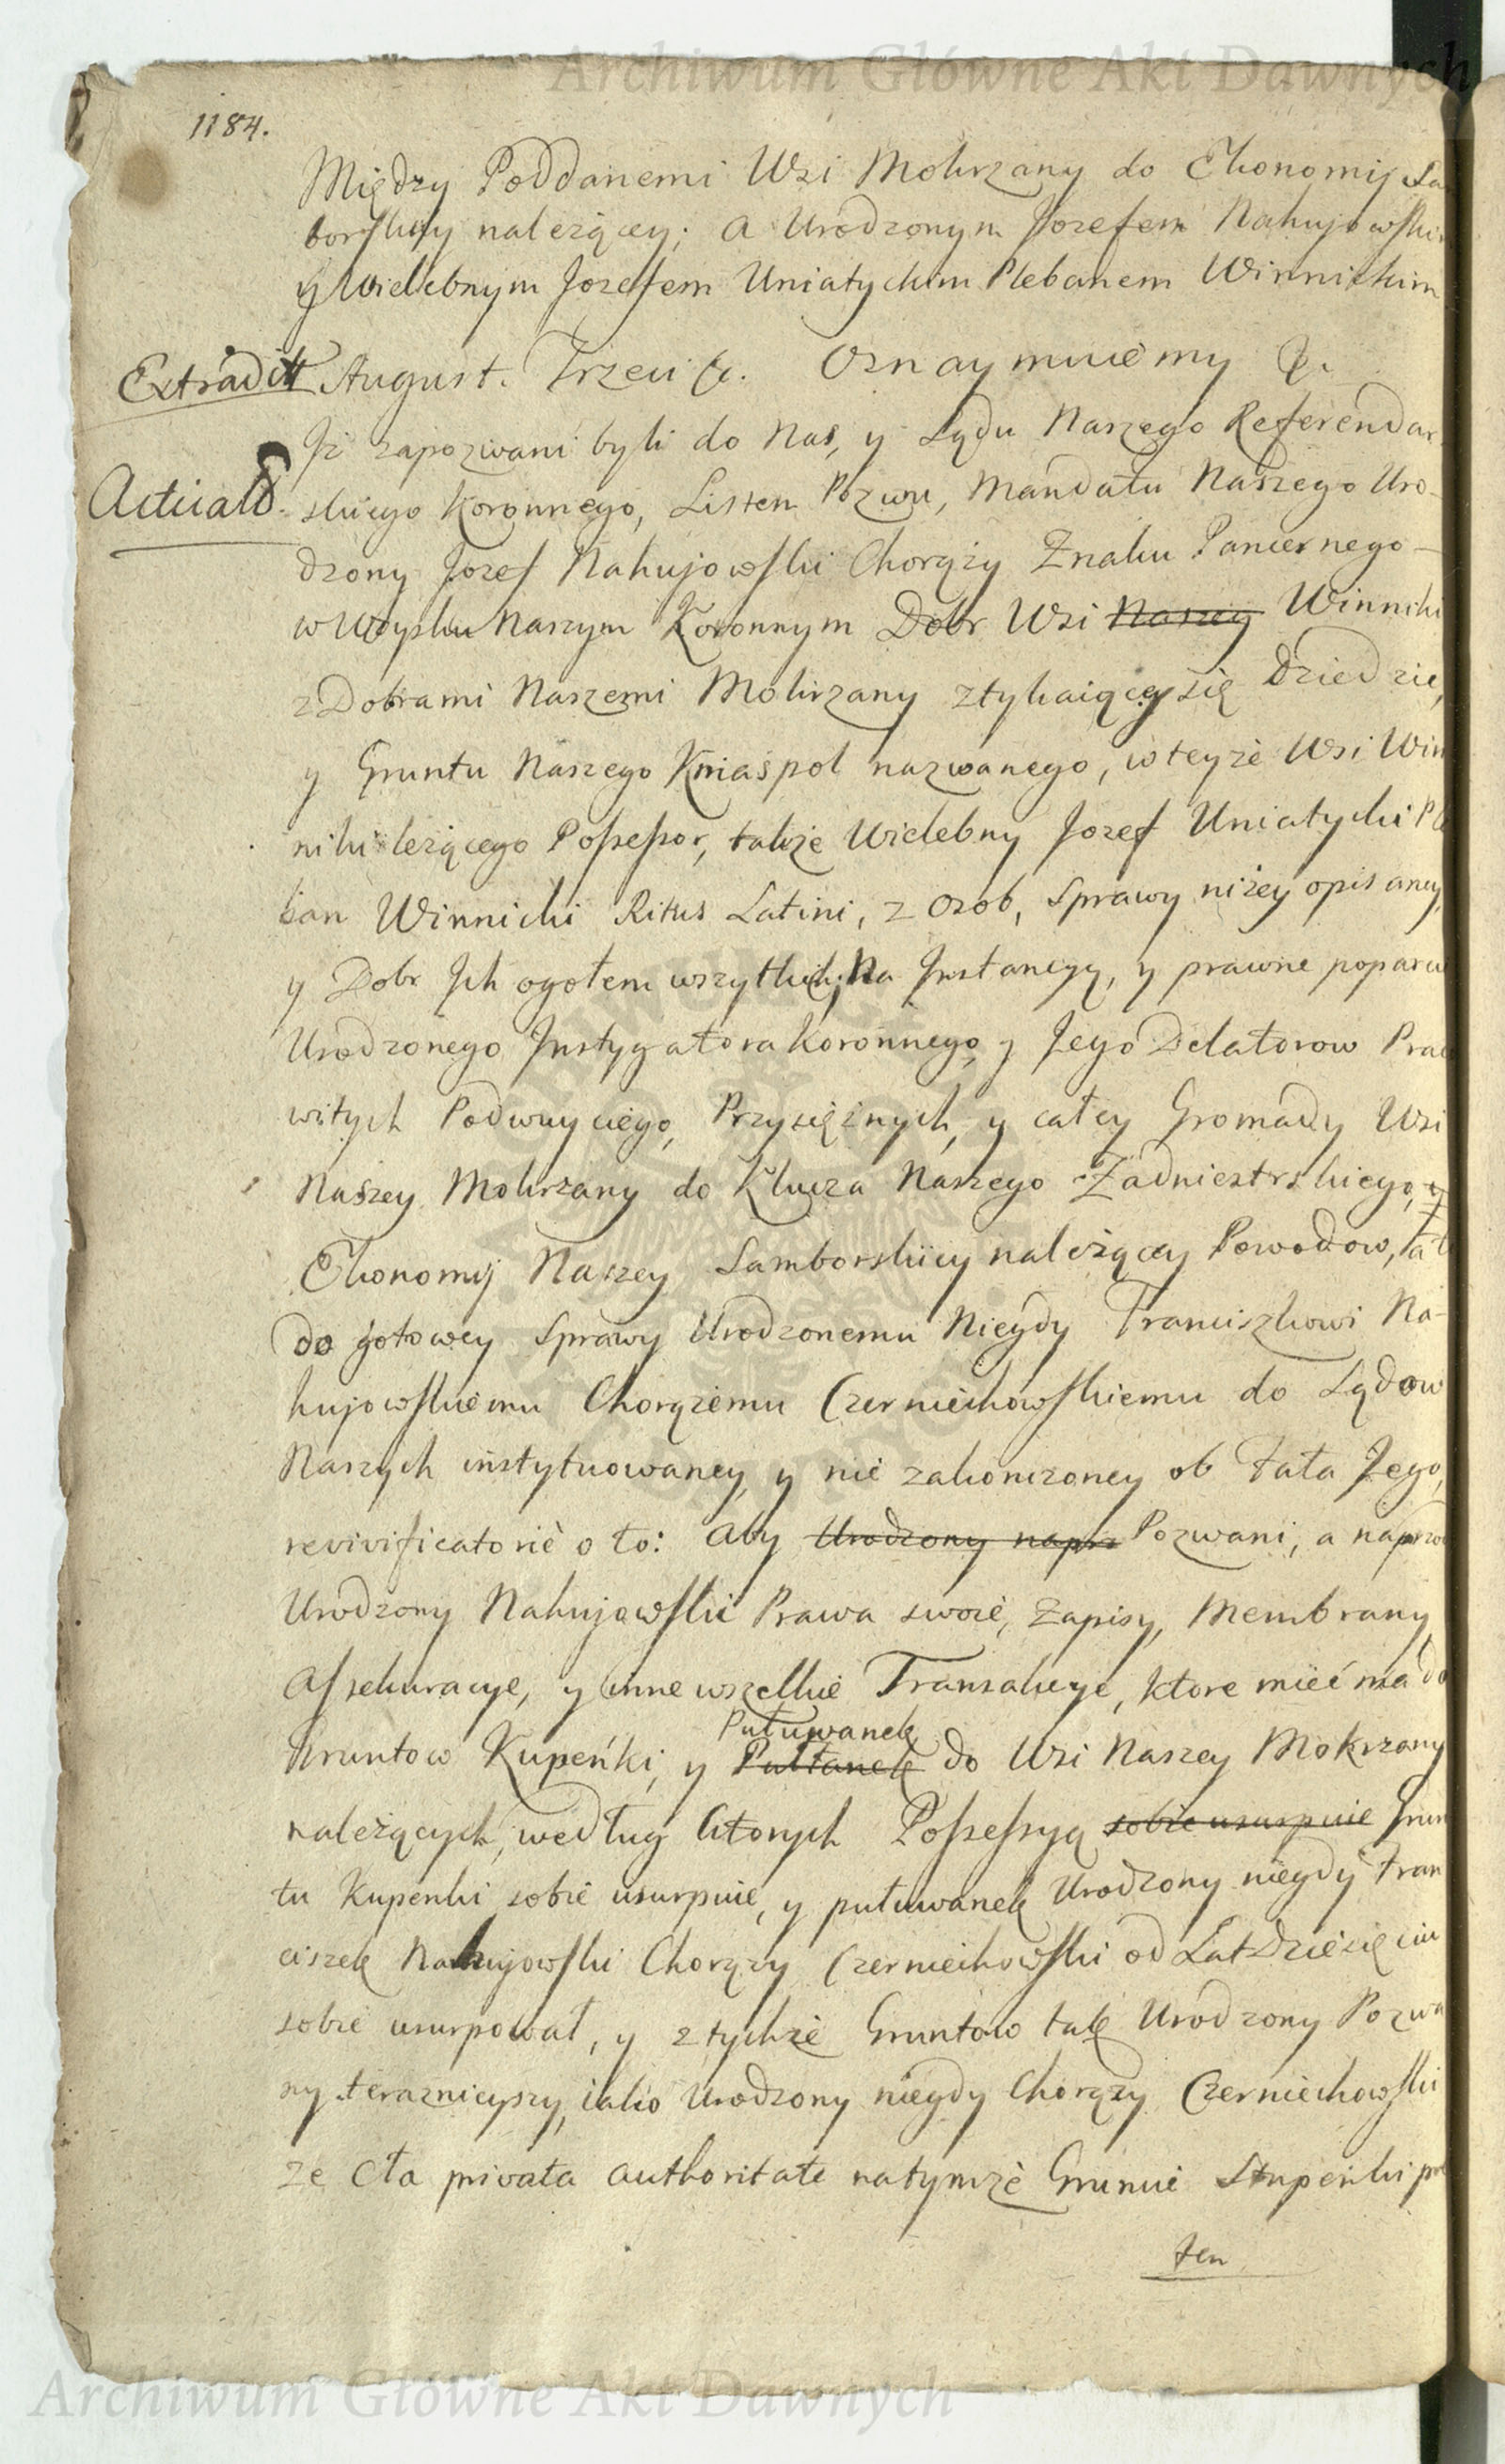 Archiwum Główne Akt Dawnych
1184.
Między Poddanemi Wsi Mokrzany do Ekonomij Sa
borskiey należący; a Urodzonym Jozefem Nahujowskim
y Wielebnym Jozefem Uniatyckim Plebanem Winnickim
Extradit August. Trzeci &. Oznaymuiemy &.
Iż zapozwani byli do Nas, y Sądu Naszego Referendar
Acticatd. skiego Koronnego, Listem Pozwu, Mandatu Naszego Uro-
dzony Jozef Nahujowski Chorąży Znaku Pancernego
w Woysku Naszym Koronnym Dobr Wsi Naszey Winniki
z Dobrami Naszemi Mokrzany ztykaiący się Dziedzic,
y Gruntu Naszego Kniaśpol nazwanego, w teyże Wsi Win
niki leżącego Possessor, także Wielebny Jozef Uniatycki Ple
ban Winnicki Ritus Latini, z Osob, Sprawy niżey opisaney,
y Dobr Ich ogołem wszytkich; Na Instancyą, y prawne poparcie
Urodzonego Instygatora Koronnego, y Jego Delatorow Prac
witych Podwuyciego, Przysiężnych, y całey Gromady Wsi
Naszey Mokrzany do Klucza Naszego Zadniestrskiego, y
Ekonomij Naszey Samborskiey należący Powodow, tak
do gotowey Sprawy Urodzonemu Niegdy Franciszkowi Na-
hujowskiemu Chorążemu Czerniechowskiemu do Sądow
Naszych instytuowaney, y nie zakonczoney ob Fata Jego,
revivificatorie o to: Aby Urodzony naprz Pozwani, a naprzod
Urodzony Nahujowski Prawa swoie, Zapisy, Membrany,
Assekuracye, y inne wszelkie Transakcye, ktore mieć ma do
Gruntow Kupeńki, y Pułtanek Putuwanek do Wsi Naszey Mokrzany
należących, według ktorych Possessyą sobie usurpuie Grun
tu Kupenki sobie usurpuie, y putuwanek Urodzony niegdy Fran
ciszek Nahujowski Chorąży Czerniechowski od Lat Dziesięciu
sobie usurpował, y z tychże Gruntow tak Urodzony Pozwa
ny teraznieyszy, iako Urodzony niegdy Chorąży Czerniechowski
że Cła privata authoritate na tymże Gruncie Stupeńki po
ten
Archiwum Główne Akt Dawnych